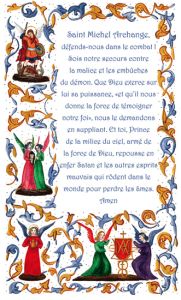 Saint Michel Archange,
défends-nous dans le combat !
Sois notre secours contre
la malice et les embûches
du démon. Que Dieu exerce sur
lui sa puissance, «et qu'il nous
donne la force de témoigner
notre foi», nous le demandons
en suppliant. Et toi, Prince
de la milice du ciel, armé de
la force de Dieu, repousse en
enfer Satan et les autres esprits
mauvais qui rôdent dans le
monde pour perdre les âmes.
Amen